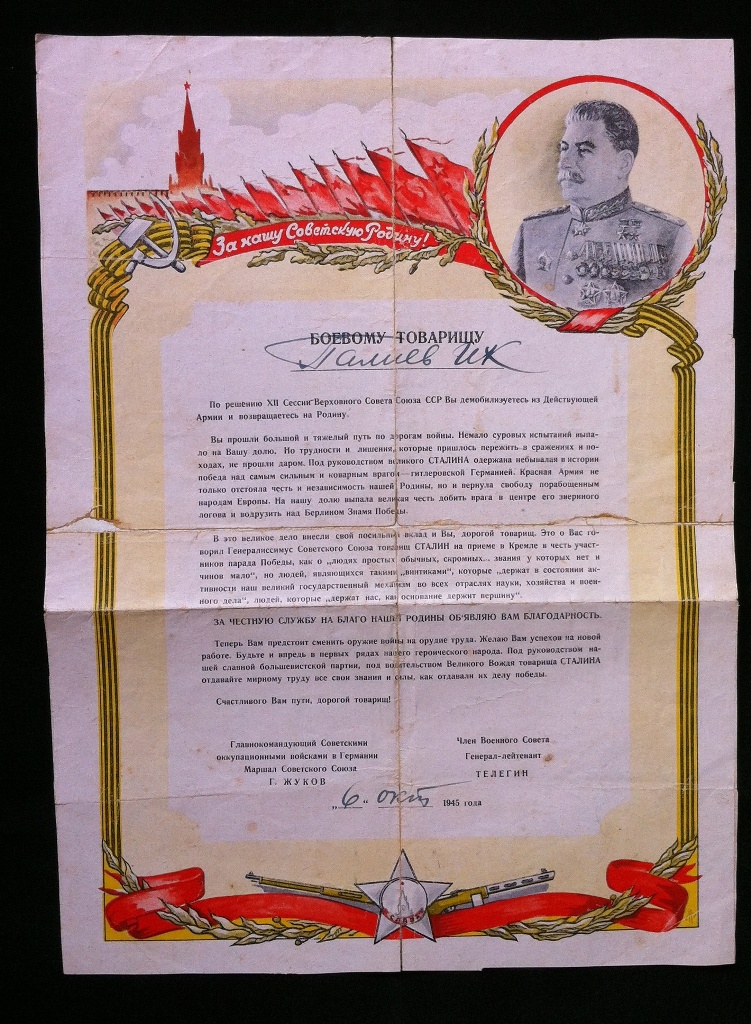 За нашу Советскую Родину!
БОЕВОМУ ТОВАРИЩУ
Палиев ИК
По решению XII Сессии Верховного Совета Союза ССР Вы демобилизуетесь из Действующей
Армии и возвращаетесь на Родину.
Вы прошли большой и тяжелый путь по дорогам войны. Немало суровых испытаний выпа-
ло на Вашу долю. Но трудности и лишения, которые пришлось пережить в сражениях и по-
ходах, не прошли даром. Под руководством великого СТАЛИНА одержана небывалая в истории
победа над самым сильным и коварным врагом — гитлеровской Германией. Красная Армия не
только отстояла честь и независимость нашей Родины, но и вернула свободу порабощенным
народам Европы. На нашу долю выпала великая честь добить врага в центре его звериного
логова и водрузить над Берлином Знамя Победы.
В это великое дело внесли свой посильный вклад и Вы, дорогой товарищ. Это о Вас го-
ворил Генералиссимус Советского Союза товарищ СТАЛИН на приеме в Кремле в честь участ-
ников парада Победы, как о „людях простых обычных, скромных... звания у которых нет и
чинов мало", но людей, являющихся такими „винтиками", которые „держат в состоянии ак-
тивности наш великий государственный механизм во всех отраслях науки, хозяйства и воен-
ного дела", людей, которые „держат нас, как основание держит вершину".
ЗА ЧЕСТНУЮ СЛУЖБУ НА БЛАГО НАШЕЙ РОДИНЫ ОБ'ЯВЛЯЮ ВАМ БЛАГОДАРНОСТЬ.
Теперь Вам предстоит сменить оружие войны на орудие труда. Желаю Вам успехов на новой
работе. Будьте и впредь в первых рядах нашего героического народа. Под руководством на-
шей славной большевистской партии, под водительством Великого Вождя товарища СТАЛИНА
отдавайте мирному труду все свои знания и силы, как отдавали их делу победы.
Счастливого Вам пути, дорогой товарищ!
Главнокомандующий Советскими
оккупационными войсками в Германии
Маршал Советского Союза
Г. ЖУКОВ
Член Военного Совета
Генерал-лейтенант
ТЕЛЕГИН
„6" окт 1945 года
СЛАВА